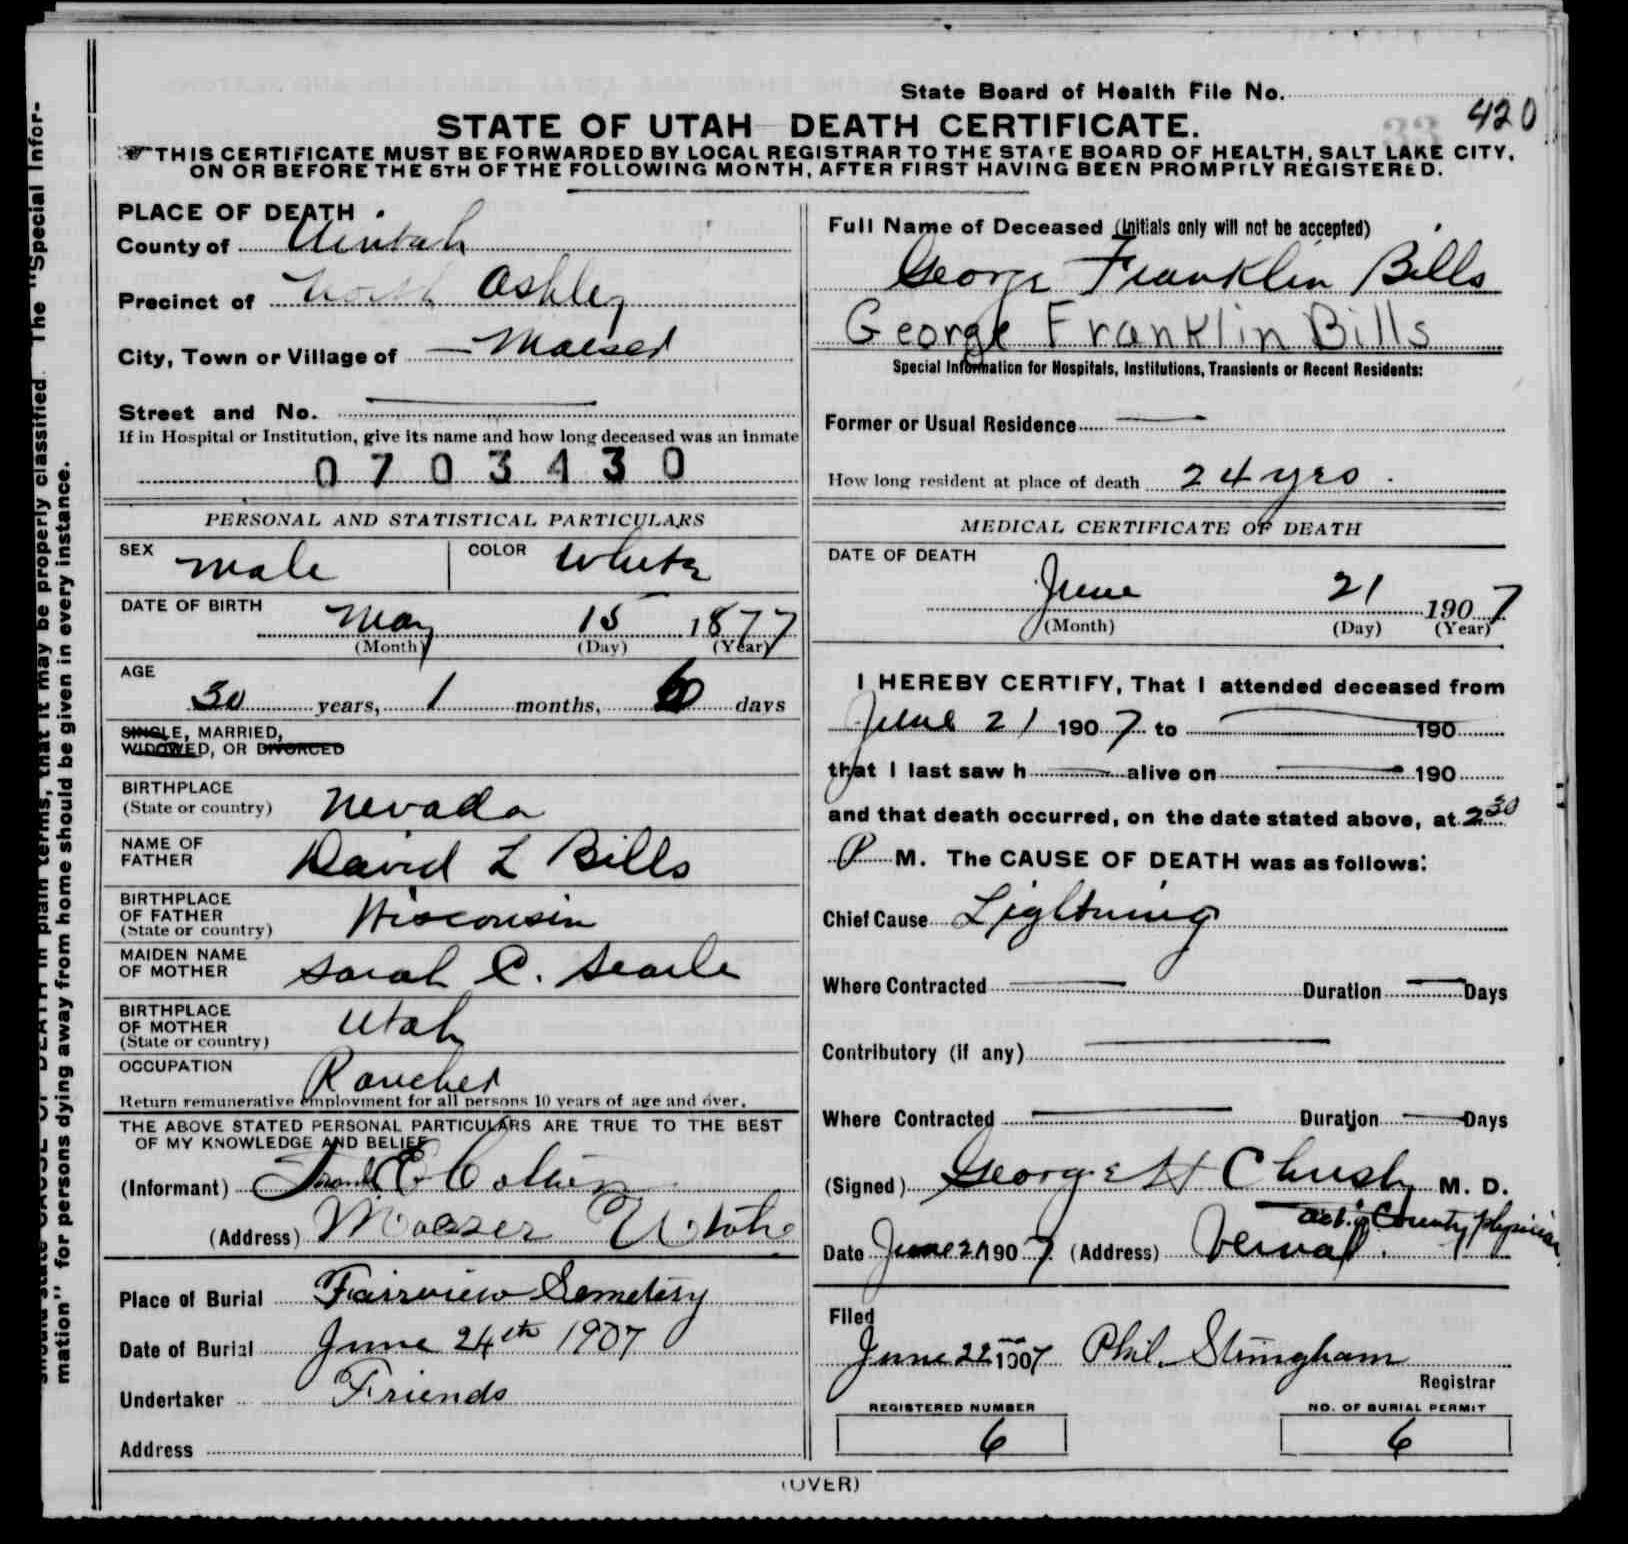 State Board of Health File No.
420
33
STATE OF UTAH DEATH CERTIFICATE.
THIS CERTIFICATE MUST BE FORWARDED BY LOCAL REGISTRAR TO THE STATE BOARD OF HEALTH, SALT LAKE CITY,
ON OR BEFORE THE 5TH OF THE FOLLOWING MONTH, AFTER FIRST HAVING BEEN PROMPTLY REGISTERED.
PLACE OF DEATH
County of Uintah
Precinct of North Ashley
City, Town or Village of Maeser
Street and No.
If in Hospital or Institution, give its name and how long deceased was an inmate
0703430
PERSONAL AND STATISTICAL PARTICULARS
SEX male COLOR White
DATE OF BIRTH May 15 1877
(Month) (Day) (Year)
AGE
30 years, 1 months, 6 days
SINGLE, MARRIED,
WIDOWED, OR DIVORCED
BIRTHPLACE
(State or country) Nevada
NAME OF
FATHER David L Bills
BIRTHPLACE
OF FATHER
(State or country) Wisconsin
MAIDEN NAME
OF MOTHER Sarah C. Searle
BIRTHPLACE
OF MOTHER
(State or country) Utah
OCCUPATION Rancher
Return remunerative employment for all persons 10 years of age and over.
THE ABOVE STATED PERSONAL PARTICULARS ARE TRUE TO THE BEST
OF MY KNOWLEDGE AND BELIEF
(Informant) E
(Address) Maeser Utah
Place of Burial Fairview Semetery
Date of Burial June 24th 1907
Undertaker Friends
Address
Full Name of Deceased (Initials only will not be accepted)
George Franklin Bills
George Franklin Bills
Special Information for Hospitals, Institutions, Transients or Recent Residents:
Former or Usual Residence
How long resident at place of death 24 yrs.
MEDICAL CERTIFICATE OF DEATH
DATE OF DEATH
June 21 1907
(Month) (Day) (Year)
I HEREBY CERTIFY, That I attended deceased from
June 21 1907 to 190
that I last saw h alive on 190
and that death occurred, on the date stated above, at 2 30
P M. The CAUSE OF DEATH was as follows:
Chief Cause Lightning
Where Contracted Duration Days
Contributory (if any)
Where Contracted Duration Days
(Signed) George H Christy M. D.
County physician
Date June 21 1907 (Address) Vernal.
Filed
June 22 1907 Phil. Stringham
Registrar
REGISTERED NUMBER
6
NO. OF BURIAL PERMIT
6
(OVER)
mation" for persons dying away from home should be given in every instance.
should state CAUSE OF DEATH in plain terms, that it may be properly classified. The "Special Infor-